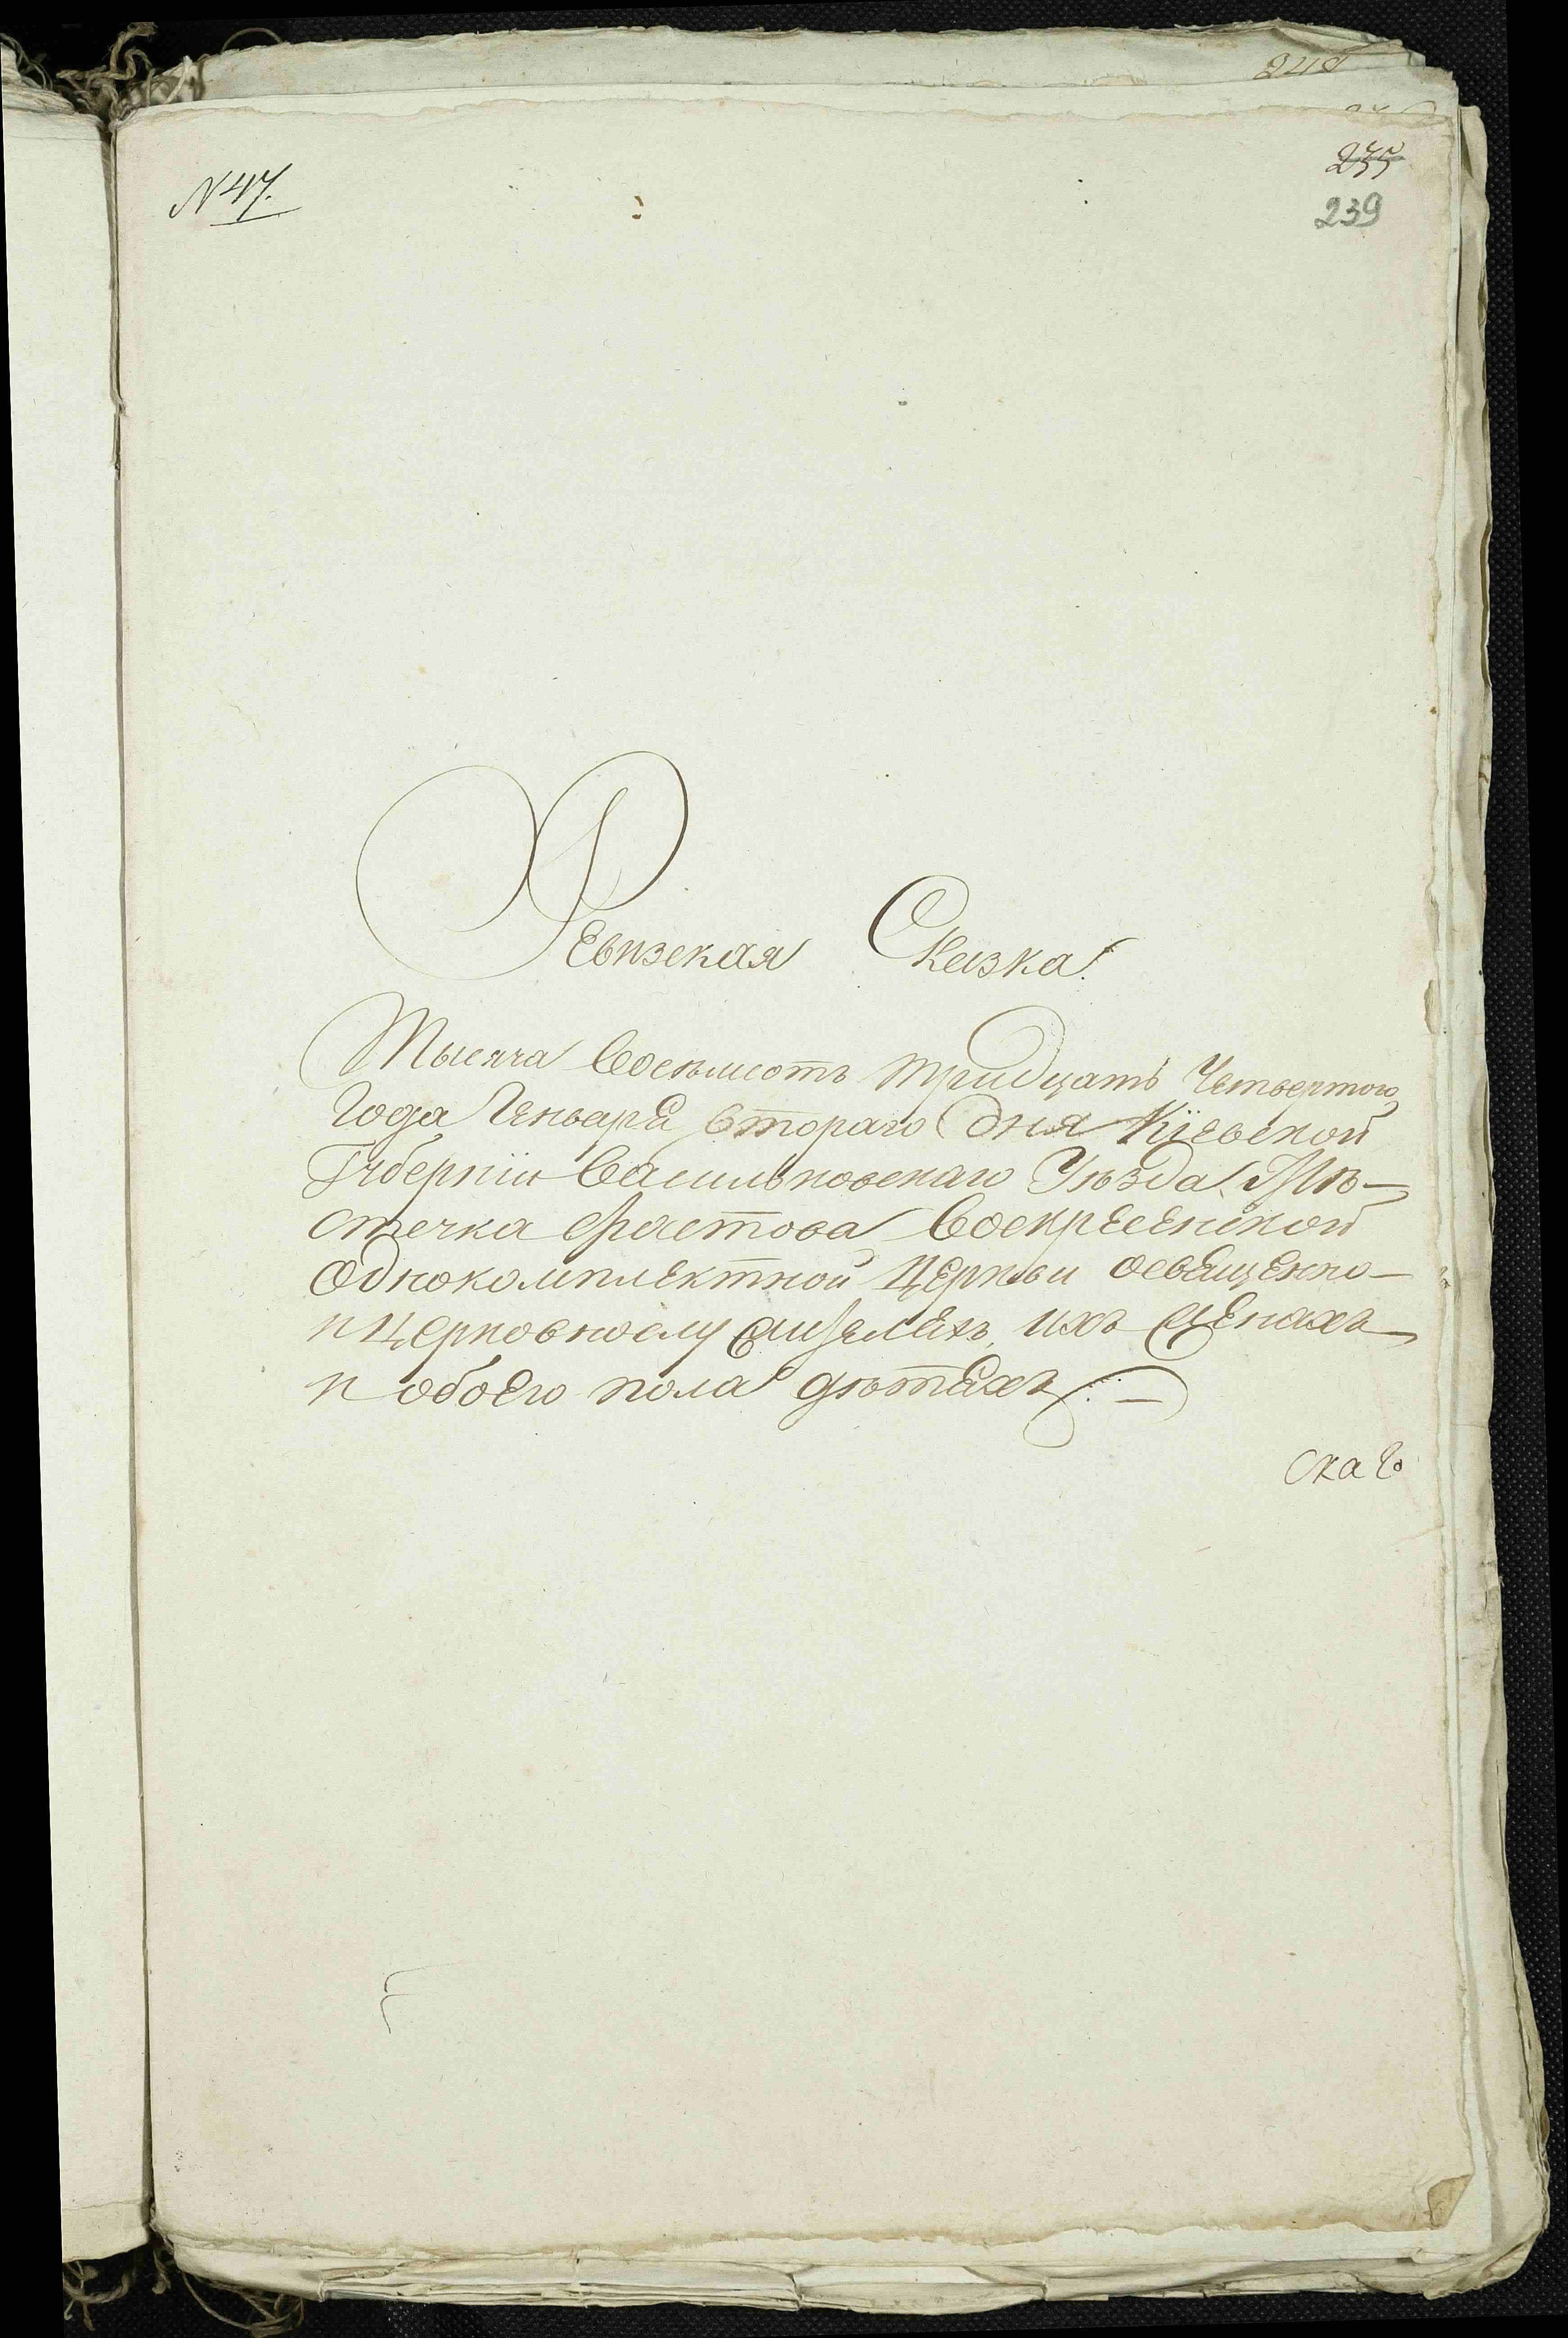 N 47.
235
239
Ревизская Сказка.
Тысяча восемьсотъ тридцать Четвертого
Года Генваря втораго дня Кіевской
Губерніи Васильковскаго Уѣзда, Мѣ-
стечка Фастова Воскресенской
Однокомплектной Церкви освященно-
и церковнослужителяхъ, ихъ женахъ
и обоего пола дѣтяхъ. —